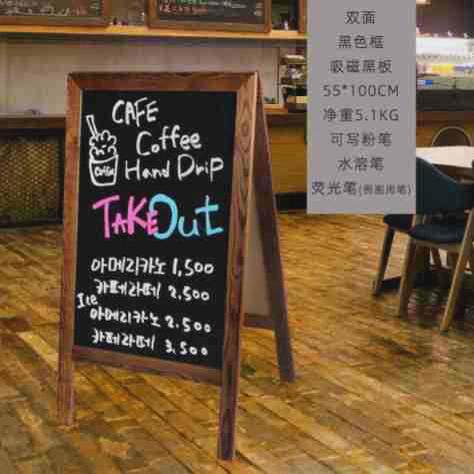 双面
黑色框
吸磁黑板
55*100CM
净重5.1KG
可写粉笔
水溶笔
荧光笔(侧面用笔)
CAFE
Coffee
Hand Drip
Coffee
TAKE Out
아메리카노 1,500
카페라떼 2,500
Ice
아메리카노 2.500
카페라떼 3,500